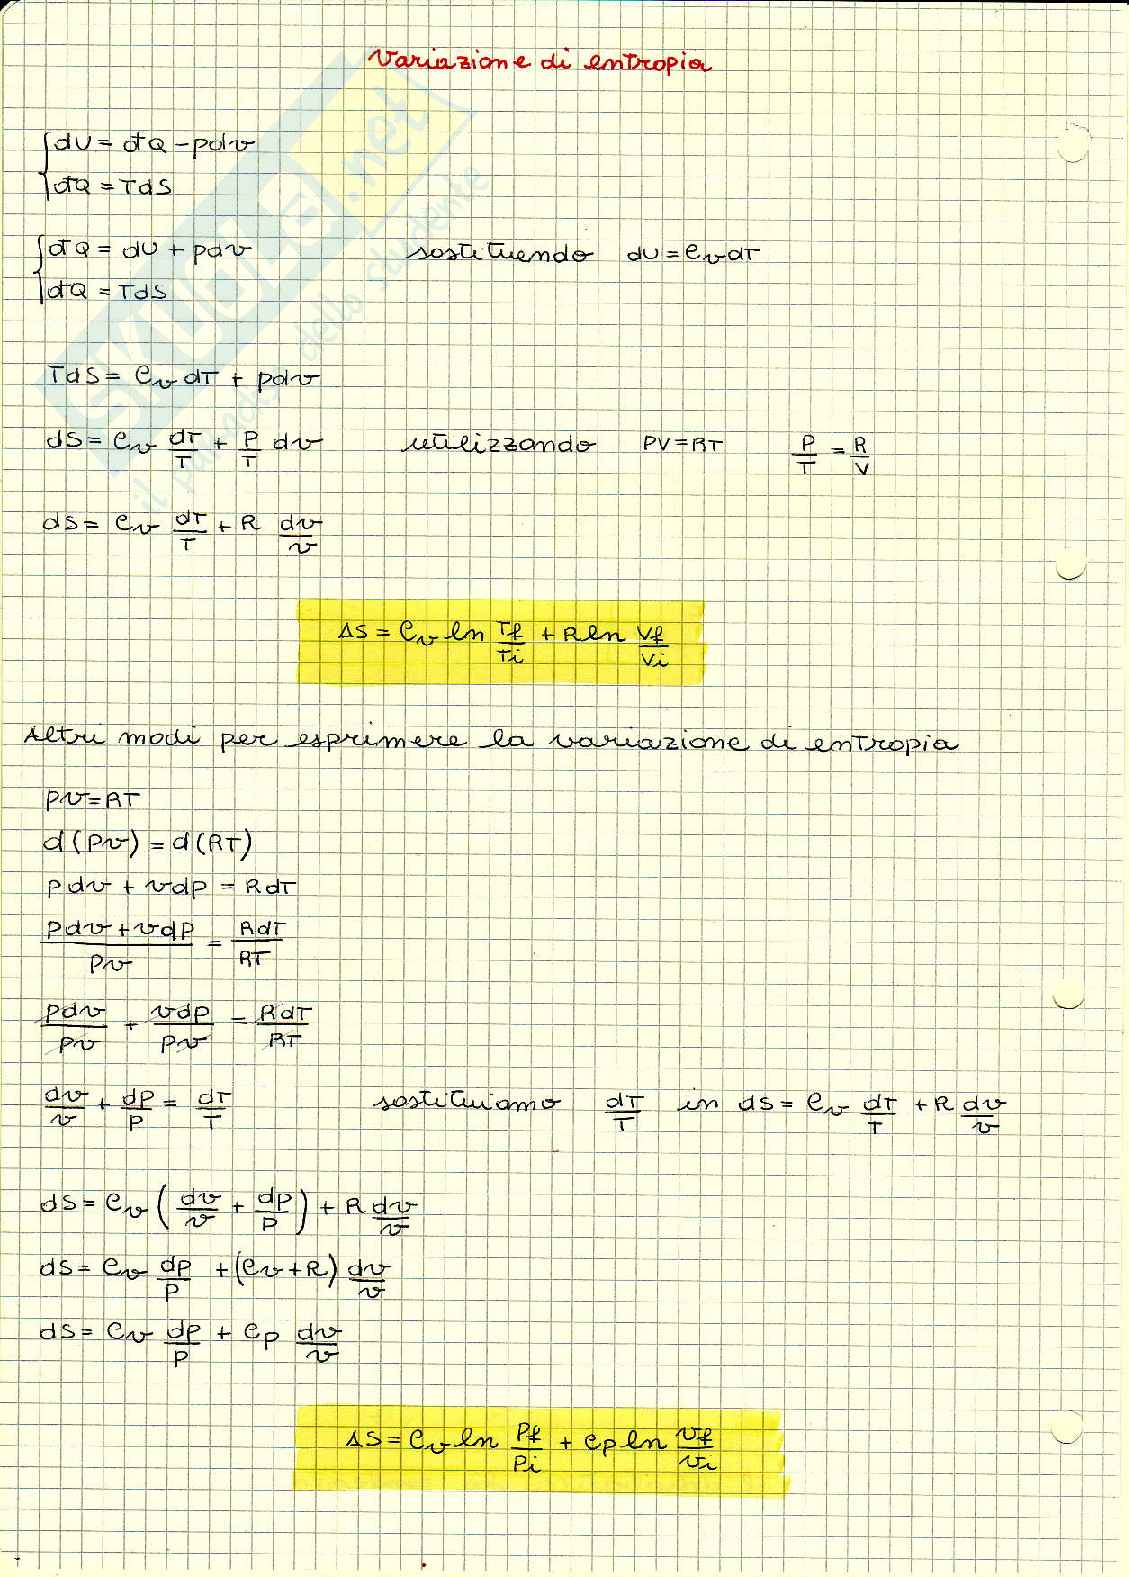 Variazione di entropia
dU = đQ - pdv
đQ = TdS
đQ = dU + pdv sostituendo dU = cv dT
đQ = TdS
TdS = cv dT + pdv
dS = cv dT/T + P/T dv utilizzando PV = RT P/T = R/V
dS = cv dT/T + R dv/v
ΔS = cv ln Tf/Ti + R ln Vf/Vi
Altri modi per esprimere la variazione di entropia
Pv = RT
d(Pv) = d(RT)
pdv + vdp = RdT
pdv + vdp / pv = RdT/RT
pdv/pv + vdp/pv = RdT/RT
dv/v + dp/p = dT/T sostituiamo dT/T in dS = cv dT/T + R dv/v
dS = cv (dv/v + dp/p) + R dv/v
dS = cv dp/p + (cv + R) dv/v
dS = cv dp/p + cp dv/v
ΔS = cv ln Pf/Pi + cp ln vf/vi
SKUOLA.net
il paradiso dello studente